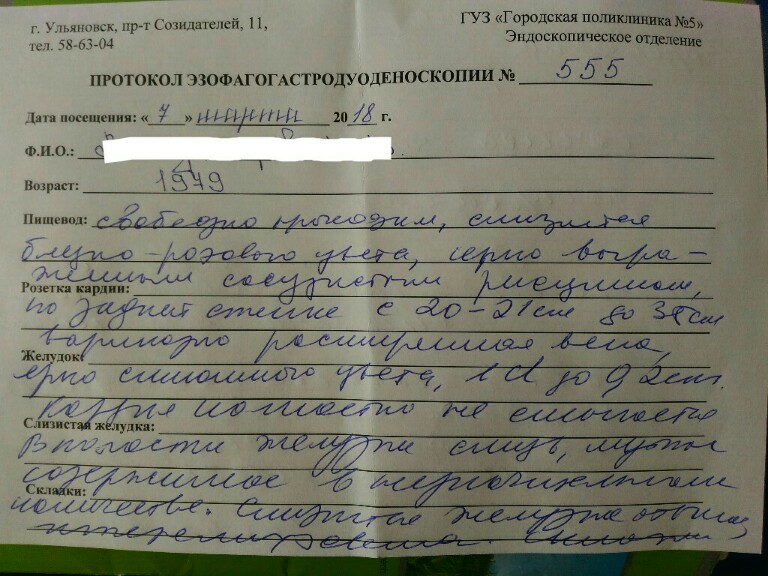 г. Ульяновск, пр-т Созидателей, 11,
тел. 58-63-04
ГУЗ «Городская поликлиника №5»
Эндоскопическое отделение
ПРОТОКОЛ ЭЗОФАГОГАСТРОДУОДЕНОСКОПИИ № 555
Дата посещения: « 7 » марта 2018 г.
Ф.И.О.:
Возраст: 1979
Пищевод: свободно проходим, слизистая
бледно-розового цвета, черно выра-
женным сосудистым рисунком,
Розетка кардии:
по задней стенке с 20-21см до 35см
варикозно расширенная вена,
Желудок:
ярко синюшного цвета, 1 d до 0,2см.
Кардия полностью не смыкается
Слизистая желудка:
В полости желудка слизь, мутное
содержимое в незначительном
Складки:
количестве. Слизистая желудка